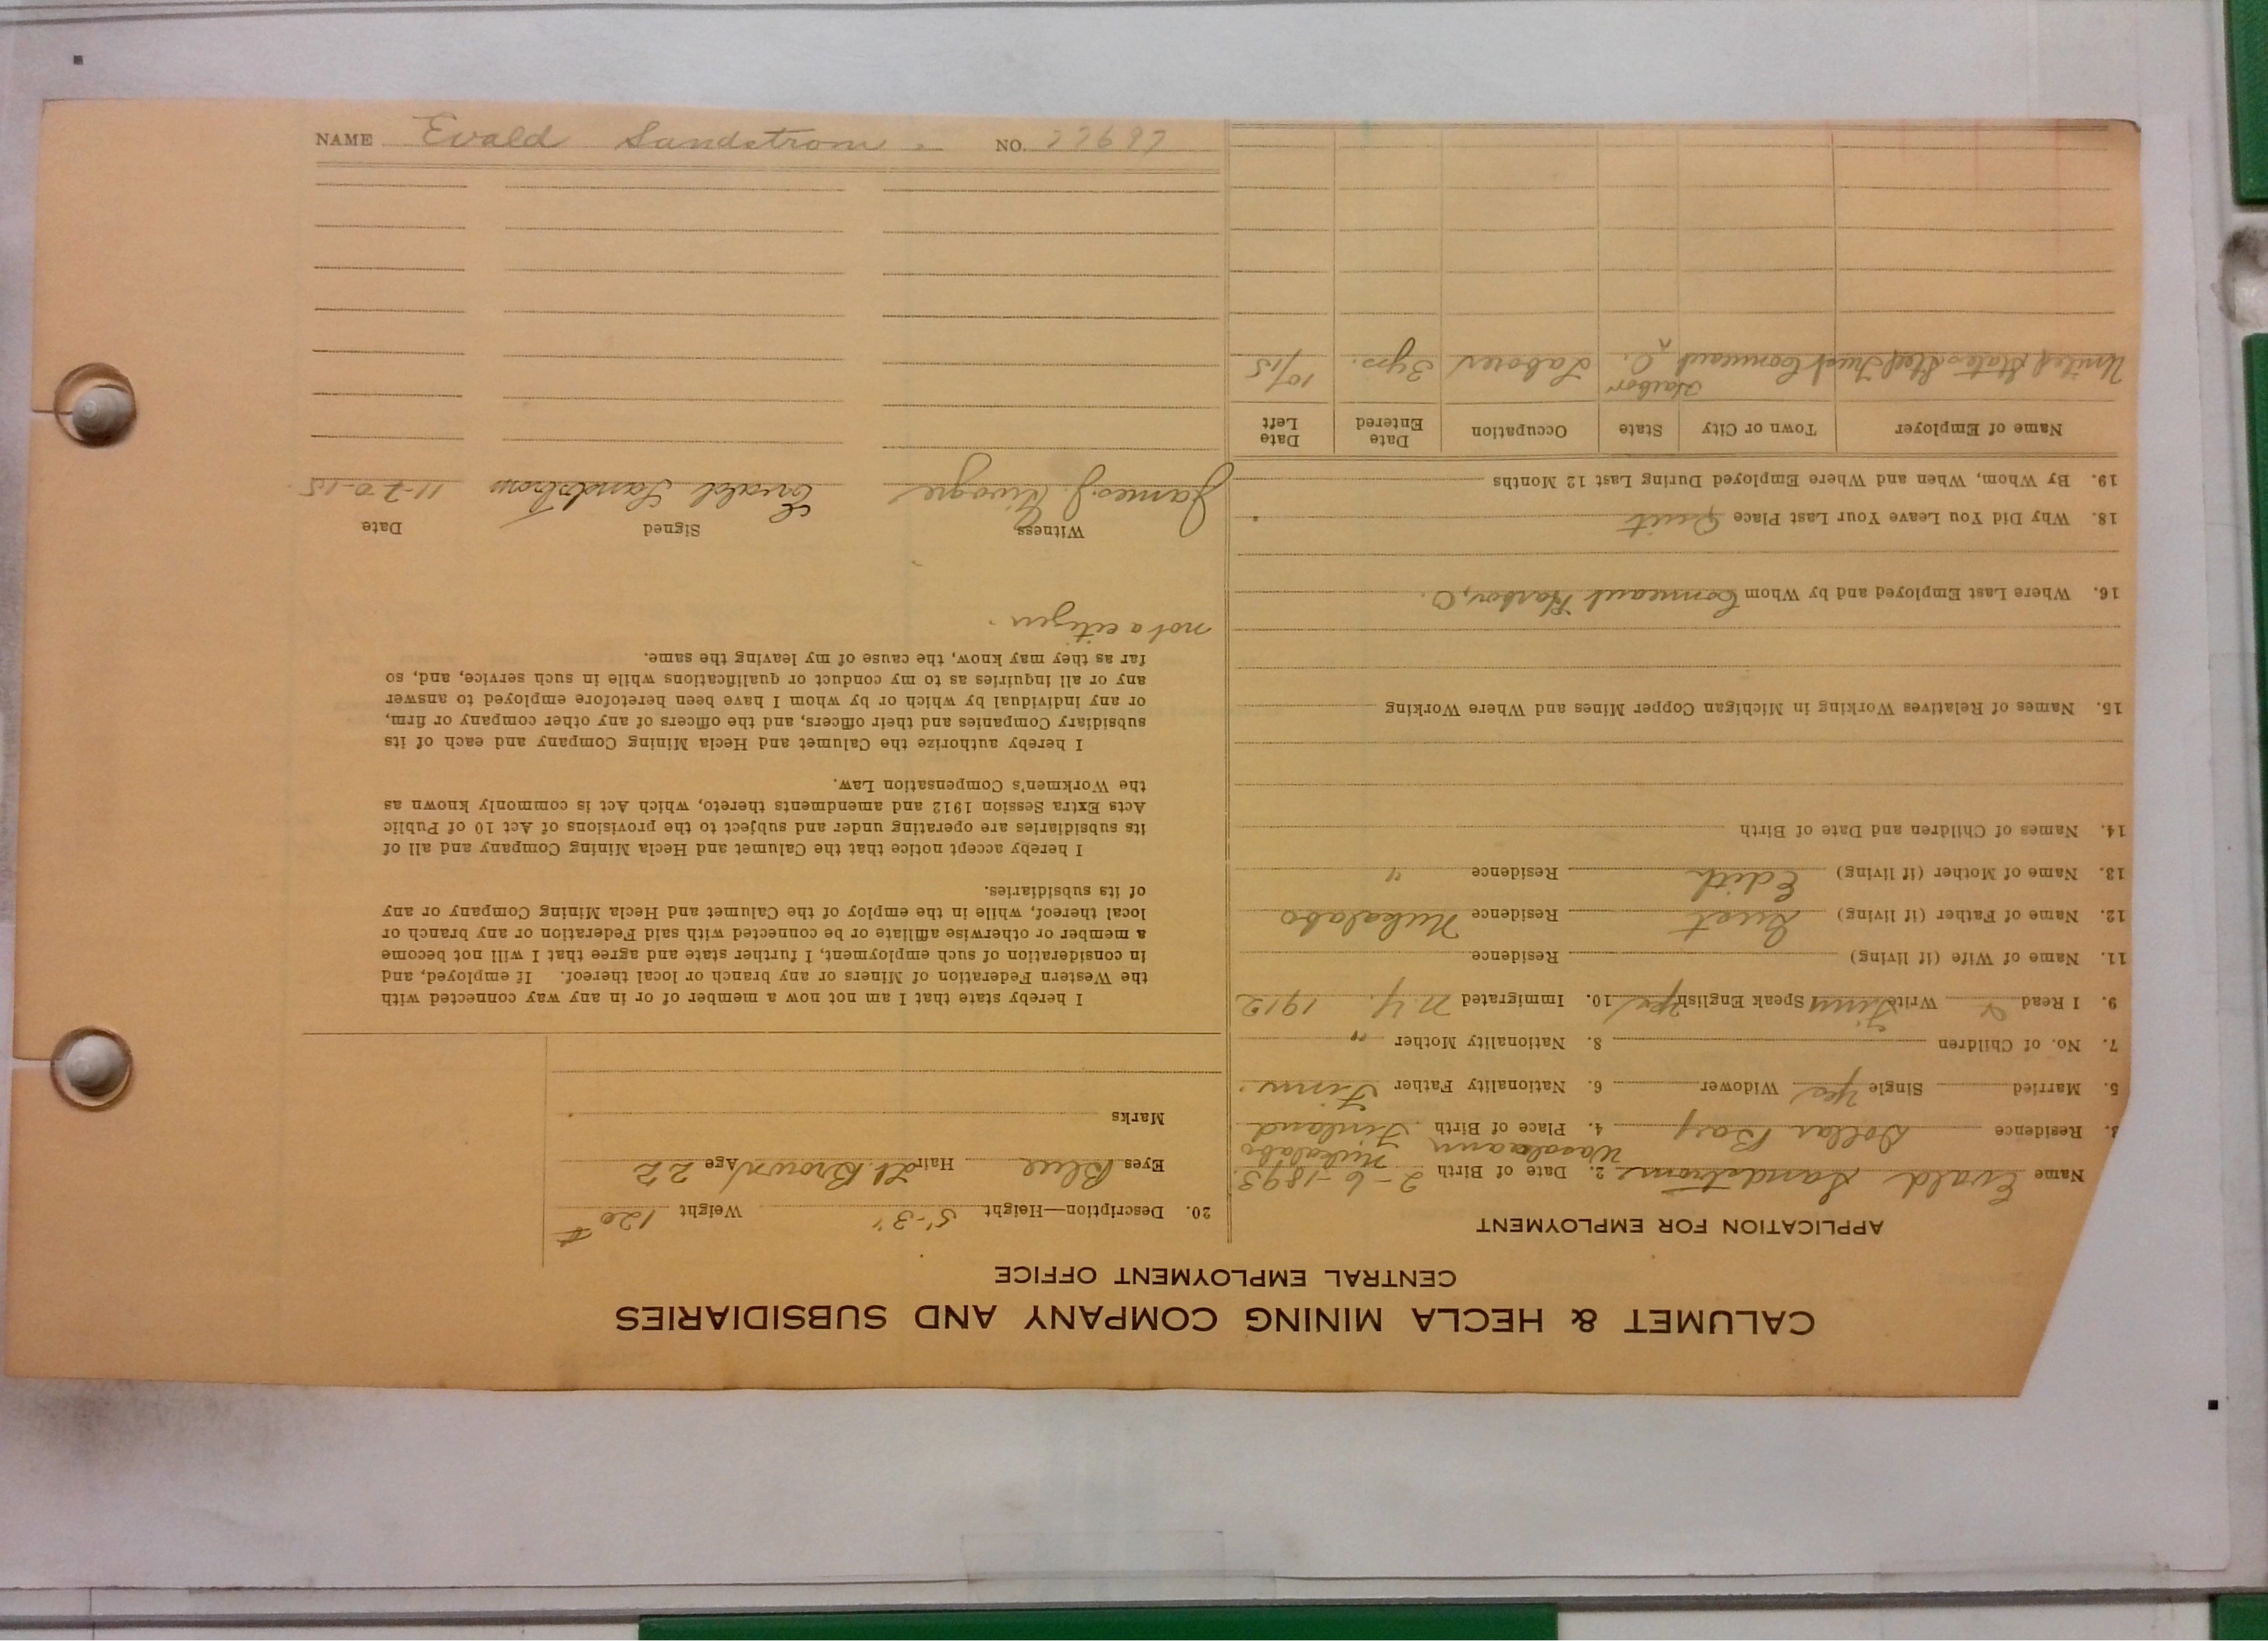 CALUMET & HECLA MINING COMPANY AND SUBSIDIARIES
CENTRAL EMPLOYMENT OFFICE
APPLICATION FOR EMPLOYMENT
Name Evald Sandstrom 2. Date of Birth 2-6-1893.
3. Residence Dollar Bay 4. Place of Birth Finland
5. Married Single Yes Widower 6. Nationality Father Finn.
7. No. of Children 8. Nationality Mother "
9. I Read & Write Finn Speak English Yes 10. Immigrated N.Y. 1912
11. Name of Wife (if living) Residence
12. Name of Father (if living) Gust Residence
13. Name of Mother (if living) Edith Residence "
14. Names of Children and Date of Birth
15. Names of Relatives Working in Michigan Copper Mines and Where Working
16. Where Last Employed and by Whom Conneaut Harbor, O.
18. Why Did You Leave Your Last Place Quit
19. By Whom, When and Where Employed During Last 12 Months
Name of Employer Town or City State Occupation Date Entered Date Left
United States Steel Conneaut Harbor O. Laborer 3 yrs. 10/15
20. Description—Height 5'-3" Weight 120 #
Eyes Blue Hair Lt. Brown Age 22
Marks
I hereby state that I am not now a member of or in any way connected with
the Western Federation of Miners or any branch or local thereof. If employed, and
in consideration of such employment, I further state and agree that I will not become
a member or otherwise affiliate or be connected with said Federation or any branch or
local thereof, while in the employ of the Calumet and Hecla Mining Company or any
of its subsidiaries.
I hereby accept notice that the Calumet and Hecla Mining Company and all of
its subsidiaries are operating under and subject to the provisions of Act 10 of Public
Acts Extra Session 1912 and amendments thereto, which Act is commonly known as
the Workmen's Compensation Law.
I hereby authorize the Calumet and Hecla Mining Company and each of its
subsidiary Companies and their officers, and the officers of any other company or firm,
or any individual by which or by whom I have been heretofore employed to answer
any or all inquiries as to my conduct or qualifications while in such service, and, so
far as they may know, the cause of my leaving the same.
not a citizen.
Witness Signed Date
James J. Evald Sandstrom
NAME Evald Sandstrom. NO. 27697